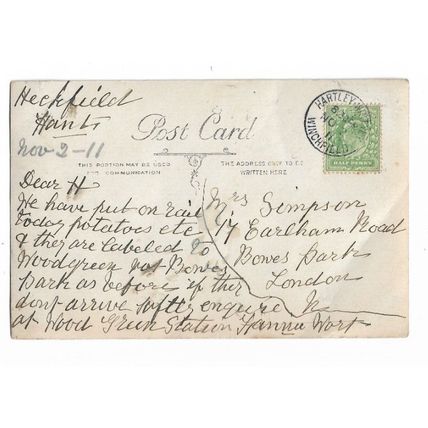 Heckfield
Hants
Nov 2-11
Post Card
THIS PORTION MAY BE USED
FOR COMMUNICATION
THE ADDRESS ONLY TO BE
WRITTEN HERE
HARTLEY
WINCHFIELD
HALF PENNY
Dear H
We have put on rail
today potatoes etc
& they are labeled to
Woodgreen not Bowes
Park as before if they
dont arrive enquire
at Wood Green Station
Mrs Simpson
17 Earlham Road
Bowes Park
London
N